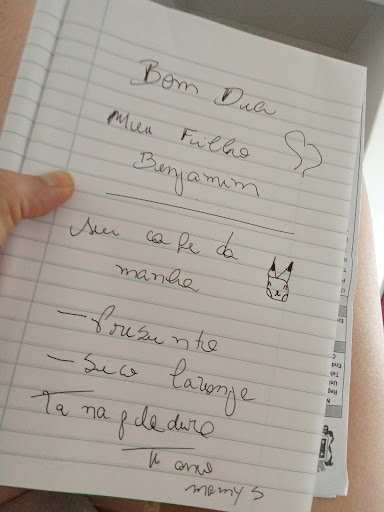 Bom Dia
Meu Filho
Benjamim
Seu cafe da
manha
- Presunto
- Suco laranje
Ta na geladure
Te amo
mamy s